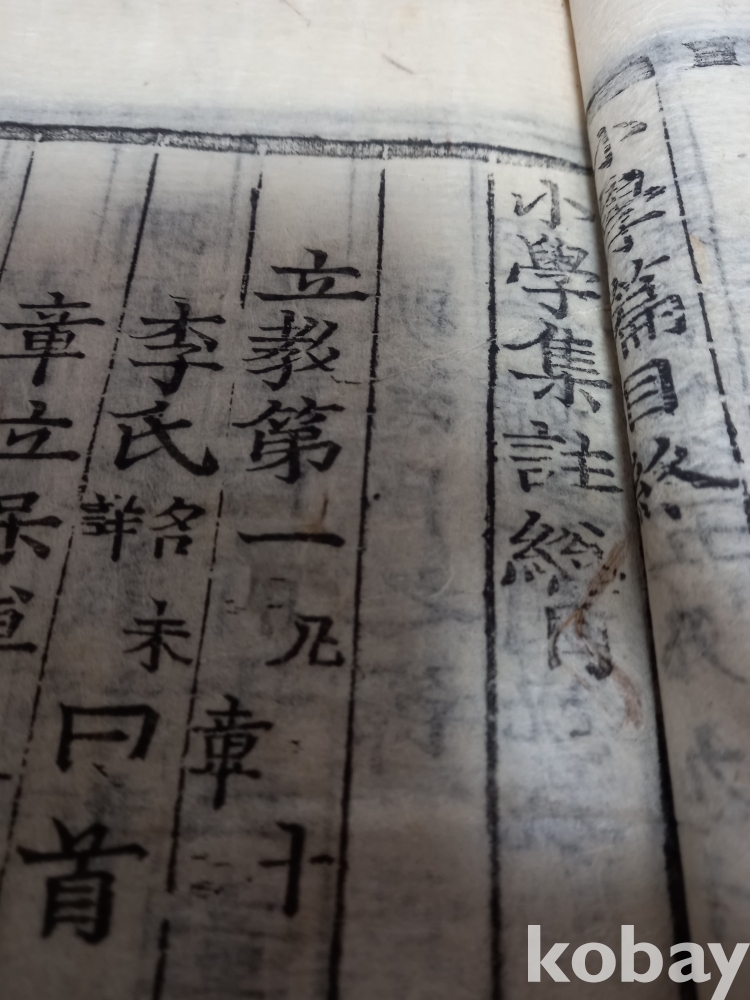 小學篇目終
小學集註總目
立敎第一凡十章
李氏名未詳曰首
章立
kobay